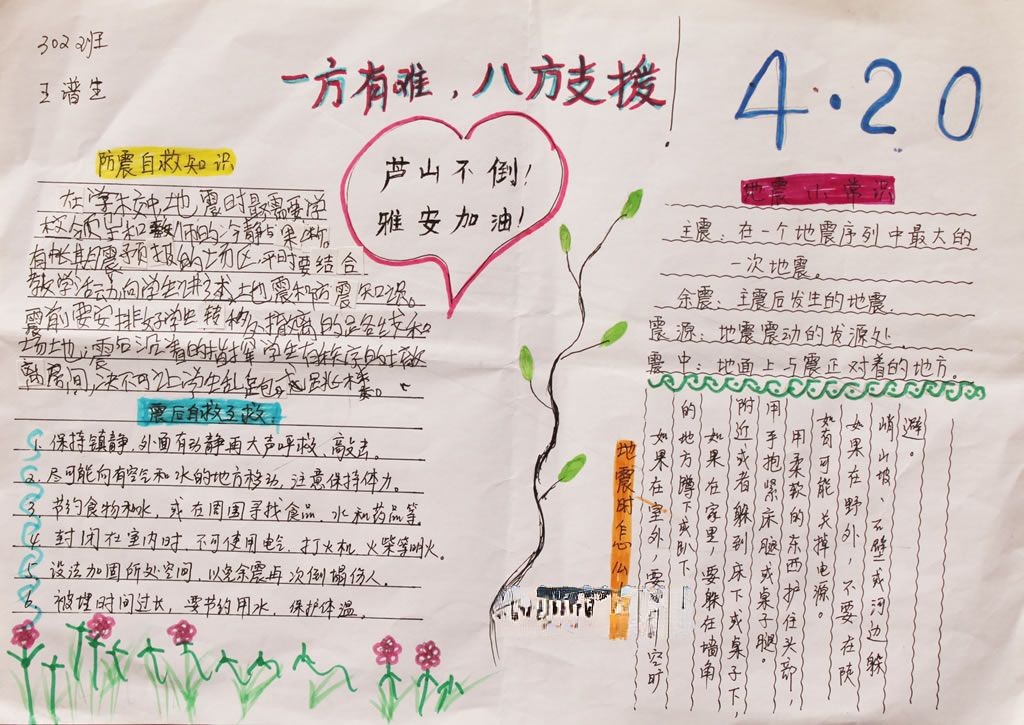 3022班
王潽生
一方有难，八方支援
4·20
芦山不倒！
雅安加油！
防震自救知识
在学校中地震时最需要学
有长期震预报的场区，平时要结合
教学活动向学生讲述地震和防震知识。
震前要安排好学生转移及撤离的路线和
场地，震后沉着的指挥学生有秩序的撤
震后自救互救
1. 保持镇静，外面有动静再大声呼救、敲击。
2. 尽可能向有空气和水的地方移动，注意保持体力。
3. 节约食物和水，或在周围寻找食品、水和药品等
4. 封闭在室内时，不可使用电气、打火机、火柴等明火。
5. 设法加固所处空间，以免余震再次倒塌伤人。
6. 被埋时间过长，要节约用水，保护体温
地震小常识
主震：在一个地震序列中最大的
一次地震。
余震：主震后发生的地震.
震源：地震震动的发源处.
震中：地面上与震正对着的地方。
地震时怎么
如果在室外，要
的地方蹲下或趴下
如果在家里，要躲在墙角
附近或者躲到床下或桌子下，
用手抱紧床腿或桌子腿。
用柔软的东西护住头部，
如有可能，关掉电源。
如果在野外，不要在陡
峭山坡、石壁或河边躲
避。